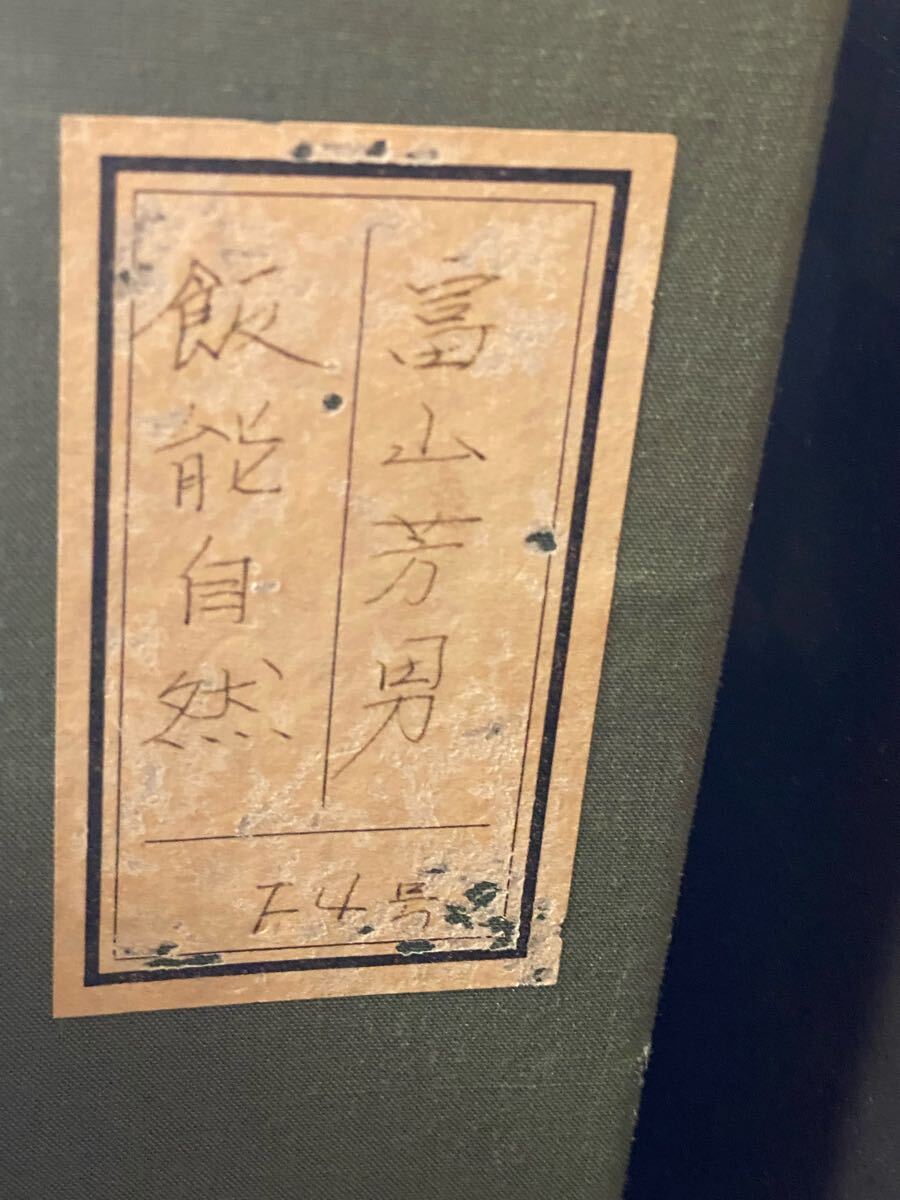 富山芳男
飯能自然
F4号